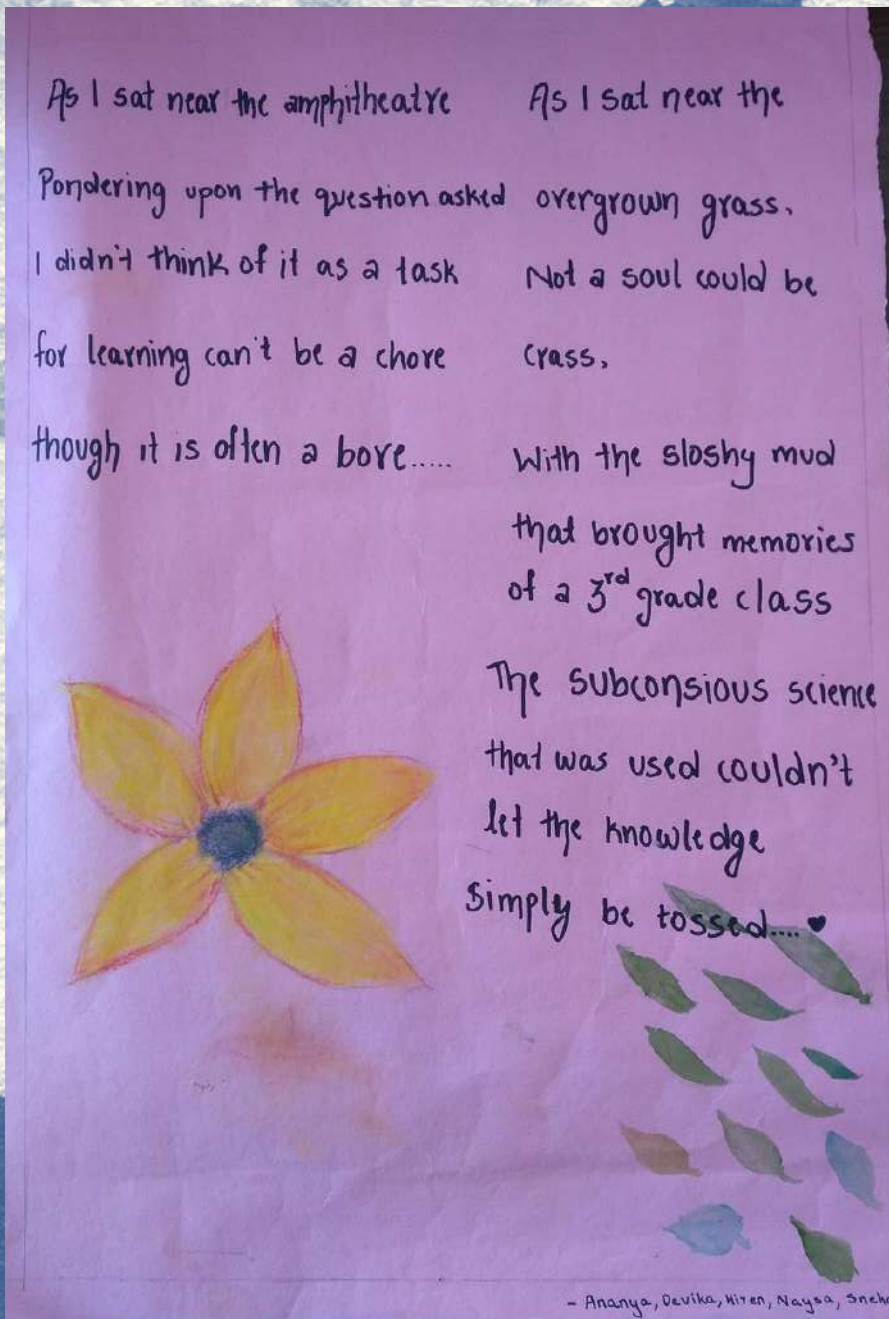 As I sat near the amphitheatre
Pondering upon the question asked
I didn't think of it as a task
for learning can't be a chore
though it is often a bore.....
As I sat near the
overgrown grass,
Not a soul could be
crass,
With the sloshy mud
that brought memories
of a 3rd grade class
The subconsious science
that was used couldn't
let the knowledge
Simply be tossed....♥
- Ananya, Devika, Hiren, Naysa,